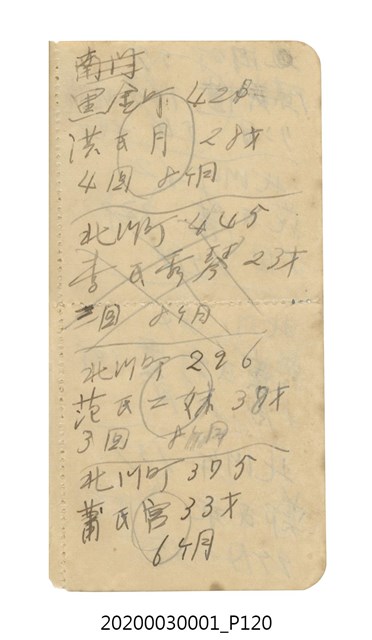 黒金町 428
洪氏月 28才
4回 8ヶ月
北川町 445
李氏秀琴 23才
二回 8ヶ月
北川町 296
范氏二妹 38才
3回 8ヶ月
北川町 375
蕭氏宮 33才
6ヶ月
20200030001_P120